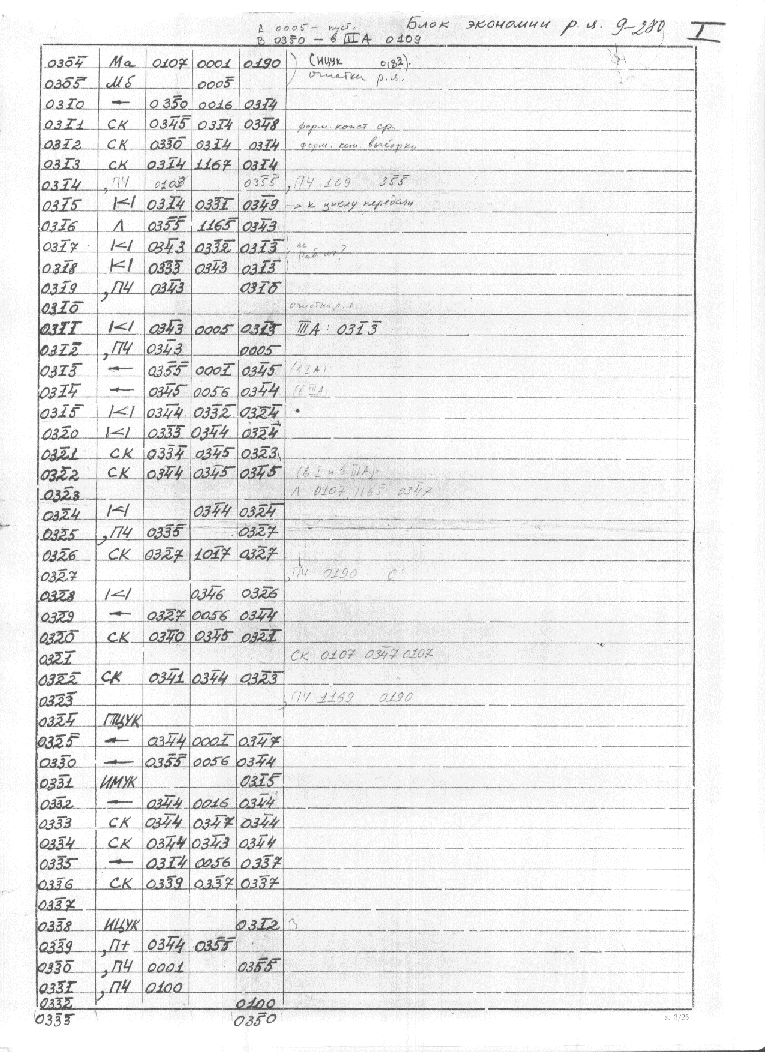 Блок экономии р.я. 9-280 I
А 0005 – пуст.
В 03̅5̅0 – в III А 0109
03̅0̅4 Ма 0107 0001 0190 (ИЦУК
03̅0̅5 Мб 0005 очистка р.я.
031̅0 ← 035̅0 0016 031̅4
031̅1 СК 034̅5 031̅4 034̅8 форм. конст. ср.
031̅2 СК 033̅0 031̅4 031̅4 форм. ком. выборки
031̅3 СК 031̅4 1167 031̅4
031̅4 ,ПЧ 0109 035̅5 ,ПЧ 169 355
031̅5 |<| 031̅4 033̅1 034̅9 → к циклу передачи
031̅6 Λ 035̅5 1165 034̅3
031̅7 |<| 034̅3 033̅2 031̅3
031̅8 |<| 033̅3 034̅3 031̅3
031̅9 ,ПЧ 034̅3 031̅0
031̅0̅ очистка р.я.
031̅1̅ |<| 034̅3 0005 031̅5 III А: 031̅3
031̅2̅ ,ПЧ 034̅3 0005
031̅3̅ ← 035̅5 0001̅ 034̅5 (I А)
031̅4̅ ← 034̅5 0056 034̅4 (III А)
031̅5̅ |<| 034̅4 033̅2 032̅4
032̅0 |<| 033̅3 034̅4 032̅4
032̅1 СК 033̅4 034̅5 032̅3
032̅2 СК 034̅4 034̅5 034̅5 (в I и в III А)
032̅3 Λ 0107 1165 034̅7
032̅4 |<| 034̅4 032̅4
032̅5 ,ПЧ 033̅5 032̅7
032̅6 СК 032̅7 101̅7 032̅7
032̅7 ,ПЧ 0190 0
032̅8 |<| 034̅6 032̅6
032̅9 ← 032̅7 0056 034̅4
032̅0̅ СК 034̅0 034̅5 032̅1
032̅1̅ СК 0107 034̅7 0107
032̅2̅ СК 034̅1 034̅4 032̅3
032̅3̅ ,ПЧ 1169 0190
032̅4̅ ПЦУК
032̅5̅ ← 034̅4 0001̅ 034̅7
033̅0 ← 035̅5 0056 034̅4
033̅1 ИМУК 031̅5
033̅2 ← 034̅4 0016 034̅4
033̅3 СК 034̅4 034̅7 034̅4
033̅4 СК 034̅4 034̅3 034̅4
033̅5 ← 031̅4 0056 033̅7
033̅6 СК 033̅9 033̅7 033̅7
033̅7
033̅8 ИЦУК 031̅2
033̅9 ,П+ 034̅4 035̅5
033̅0̅ ,ПЧ 0001 035̅5
033̅1̅ ,ПЧ 0100
033̅2̅ 0100
033̅3̅ 035̅0